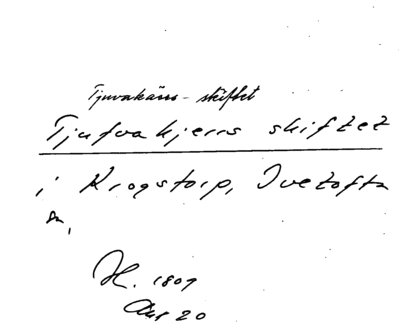 Tjuvakärrs-skiftet
Tjufvakjerrs skiftet
i Krogstorp, Ivetofta
sn,
H. 1809
Akt 20